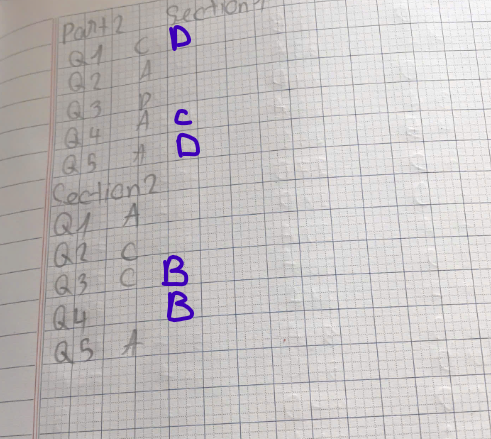 Part 2 Section 1
Q1 C D
Q2 A
Q3 D
Q4 A C
Q5 A D
Section 2
Q1 A
Q2 C
Q3 C B
Q4 B
Q5 A